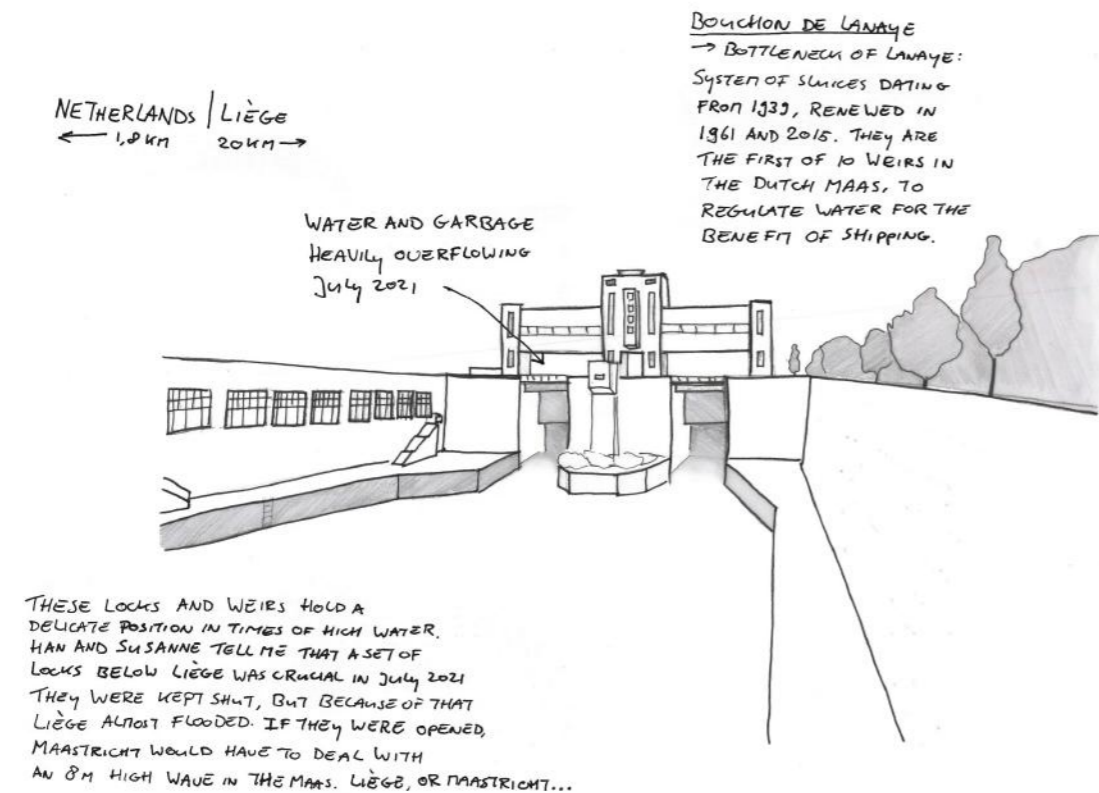 BOUCHON DE LANAYE
→ BOTTLENECK OF LANAYE:
SYSTEM OF SLUICES DATING
FROM 1939, RENEWED IN
1961 AND 2015. THEY ARE
THE FIRST OF 10 WEIRS IN
THE DUTCH MAAS, TO
REGULATE WATER FOR THE
BENEFIT OF SHIPPING.
NETHERLANDS | LIÈGE
← 1,8 KM 20 KM →
WATER AND GARBAGE
HEAVILY OVERFLOWING
JULY 2021
THESE LOCKS AND WEIRS HOLD A
DELICATE POSITION IN TIMES OF HIGH WATER.
HAN AND SUSANNE TELL ME THAT A SET OF
LOCKS BELOW LIÈGE WAS CRUCIAL IN JULY 2021
THEY WERE KEPT SHUT, BUT BECAUSE OF THAT
LIÈGE ALMOST FLOODED. IF THEY WERE OPENED,
MAASTRICHT WOULD HAVE TO DEAL WITH
AN 8M HIGH WAVE IN THE MAAS. LIÈGE, OR MAASTRICHT...